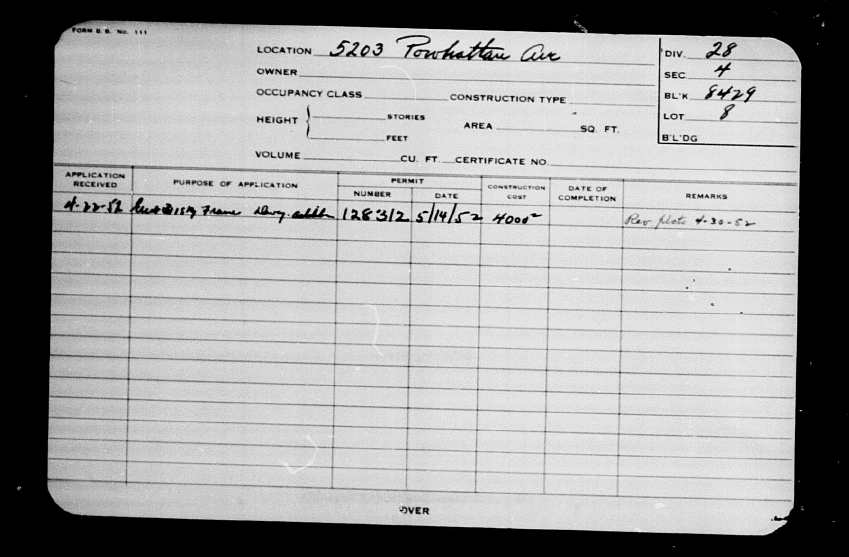 FORM B. B. No. 111
LOCATION 5203 Powhattan Ave
DIV. 28
OWNER
SEC. 4
OCCUPANCY CLASS CONSTRUCTION TYPE
BL'K 8429
HEIGHT STORIES
FEET
AREA SQ. FT.
LOT 8
B'L'DG
VOLUME CU. FT. CERTIFICATE NO.
APPLICATION RECEIVED PURPOSE OF APPLICATION PERMIT NUMBER DATE CONSTRUCTION COST DATE OF COMPLETION REMARKS
4-22-52 Frame Dwg. 128312 5/14/52 4000 Rev plots 4-30-52
OVER